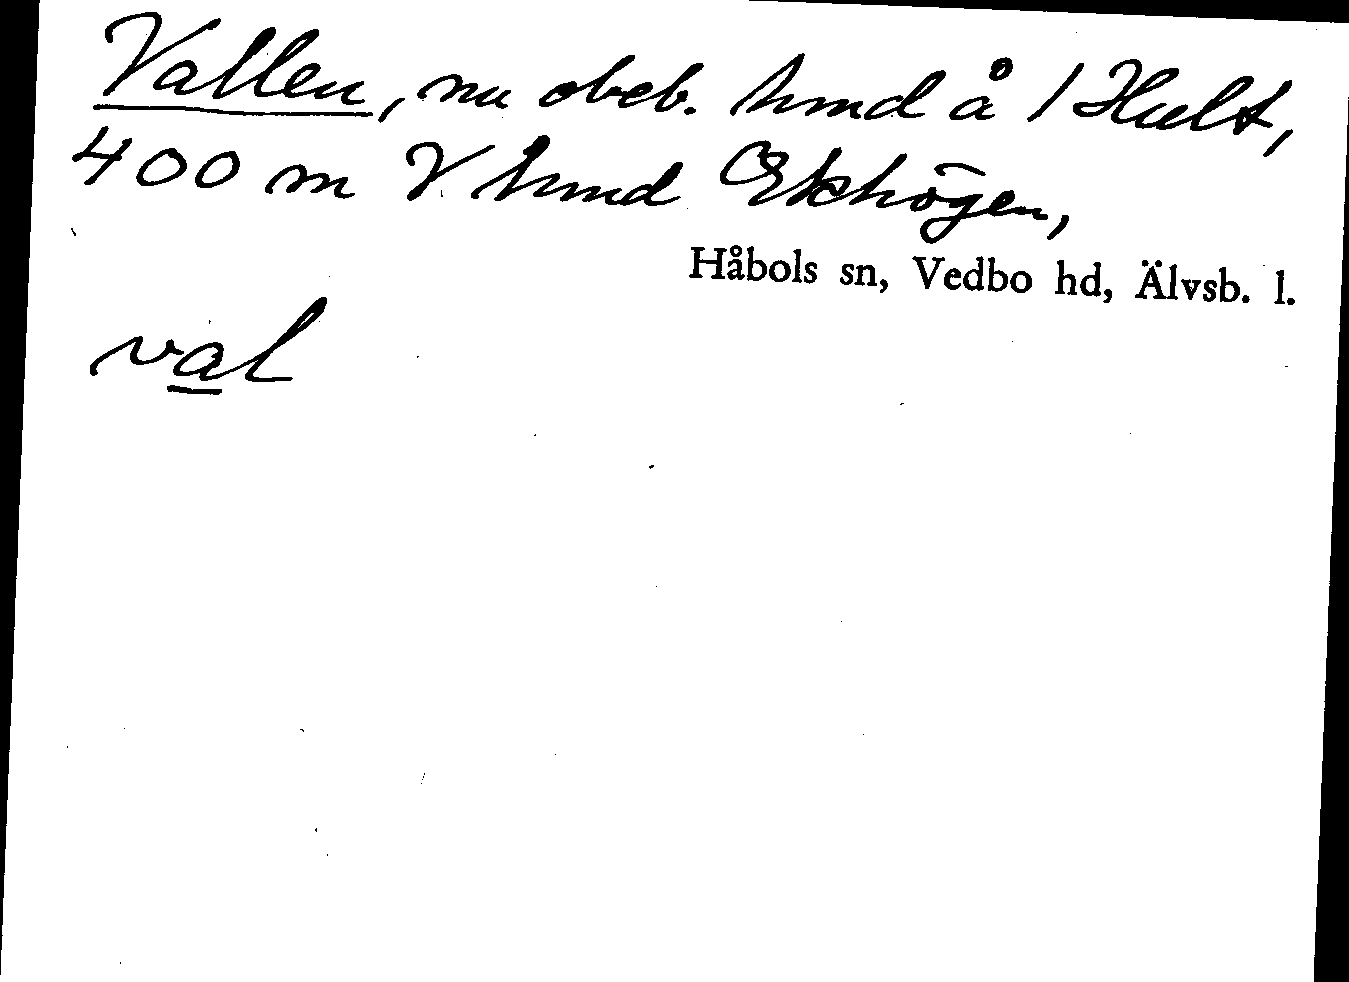 Vallen, nu obeb. hmd å 1 Hult,
400 m V hmd Ekhögen,
Håbols sn, Vedbo hd, Älvsb. l.
val